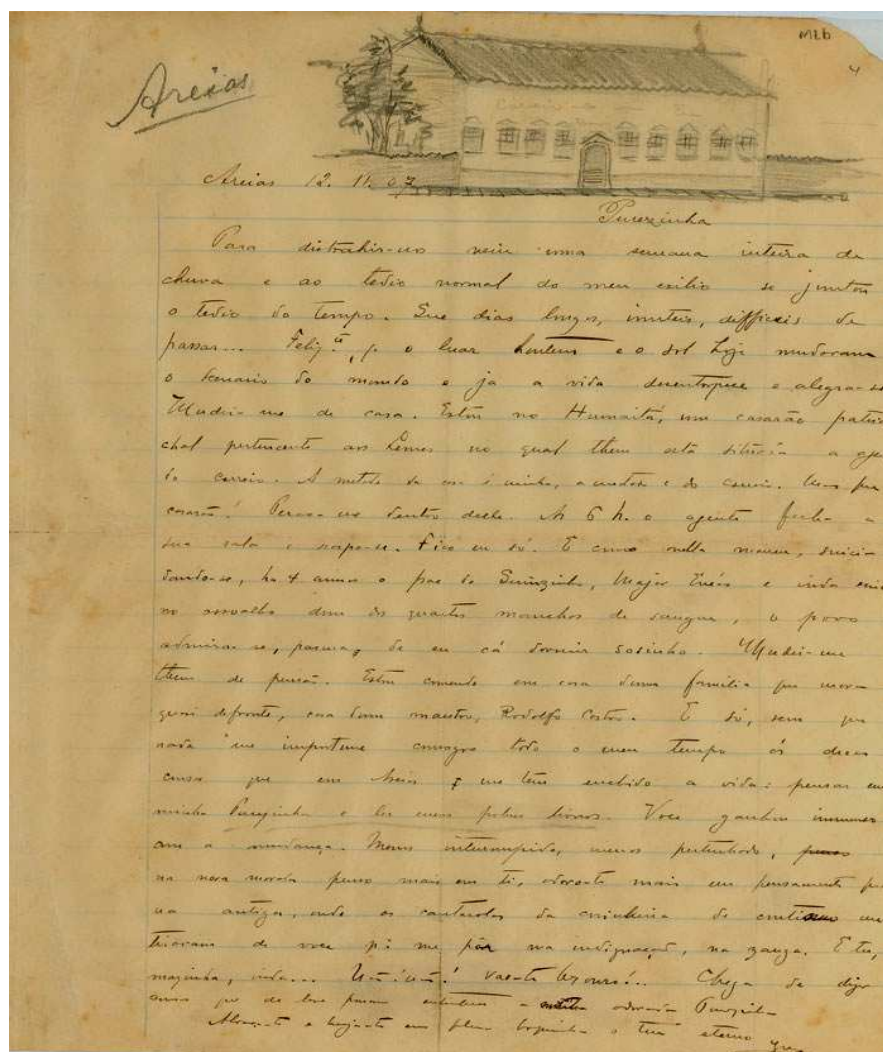 MLb
4
Areias
Areias 12. 11. 07
Purezinha
Para distrahir-nos veiu uma semana inteira de
chuva e ao tedio normal do meu exilio se juntou
o tedio do tempo. Que dias longos, inuteis, difficeis de
passar... Feliz.te, já o luar hontem e o sol hoje mudaram
o scenario do mundo e ja a vida desentorpece e alegra-se
Mudei-me de casa. Estou no Humaitá, um casarão patriar
chal pertencente aos Lemes no qual tbem está situada a age
do correio. A metade da casa é minha, a metade é do correio. Mas que
casarão! Perco-me dentro delle. As 6 h. o agente fecha a
sua sala e escapa-se. Fico eu só. E como nella morreu, suici
dando-se, ha 4 annos o pae do Quinzinho, Major e inda
no assoalho dum dos quartos manchas de sangue, o povo
admira-se, pasma, de eu cá dormir sosinho. Mudei-me
tbem de pensão. Estou comendo em casa duma familia que mora
quasi defronte, casa dum maestro, Rodolfo Costa. E só, sem que
nada me importune consagro todo o meu tempo ás duas
cousas que em Areias me tem enchido a vida: pensar em
minha Purezinha e ler meus pobres livros. Voce ganhou immenso
com a mudança. Menos interrompido, menos perturbado,
na nova morada penso mais em ti, adoro-te mais em pensamento que
na antiga, onde as cantarolas da cozinheira de me
tiravam de voce p.a me pôr na indignação, na zanga. E tu,
mazinha, inda... vae-te Chega de
que de leve possam a adorada Purezinha
Abraça-te e beija-te em plena boquinha o teu eterno